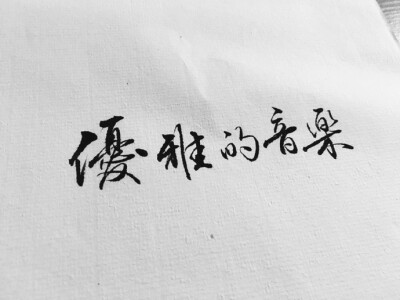 優雅的音楽